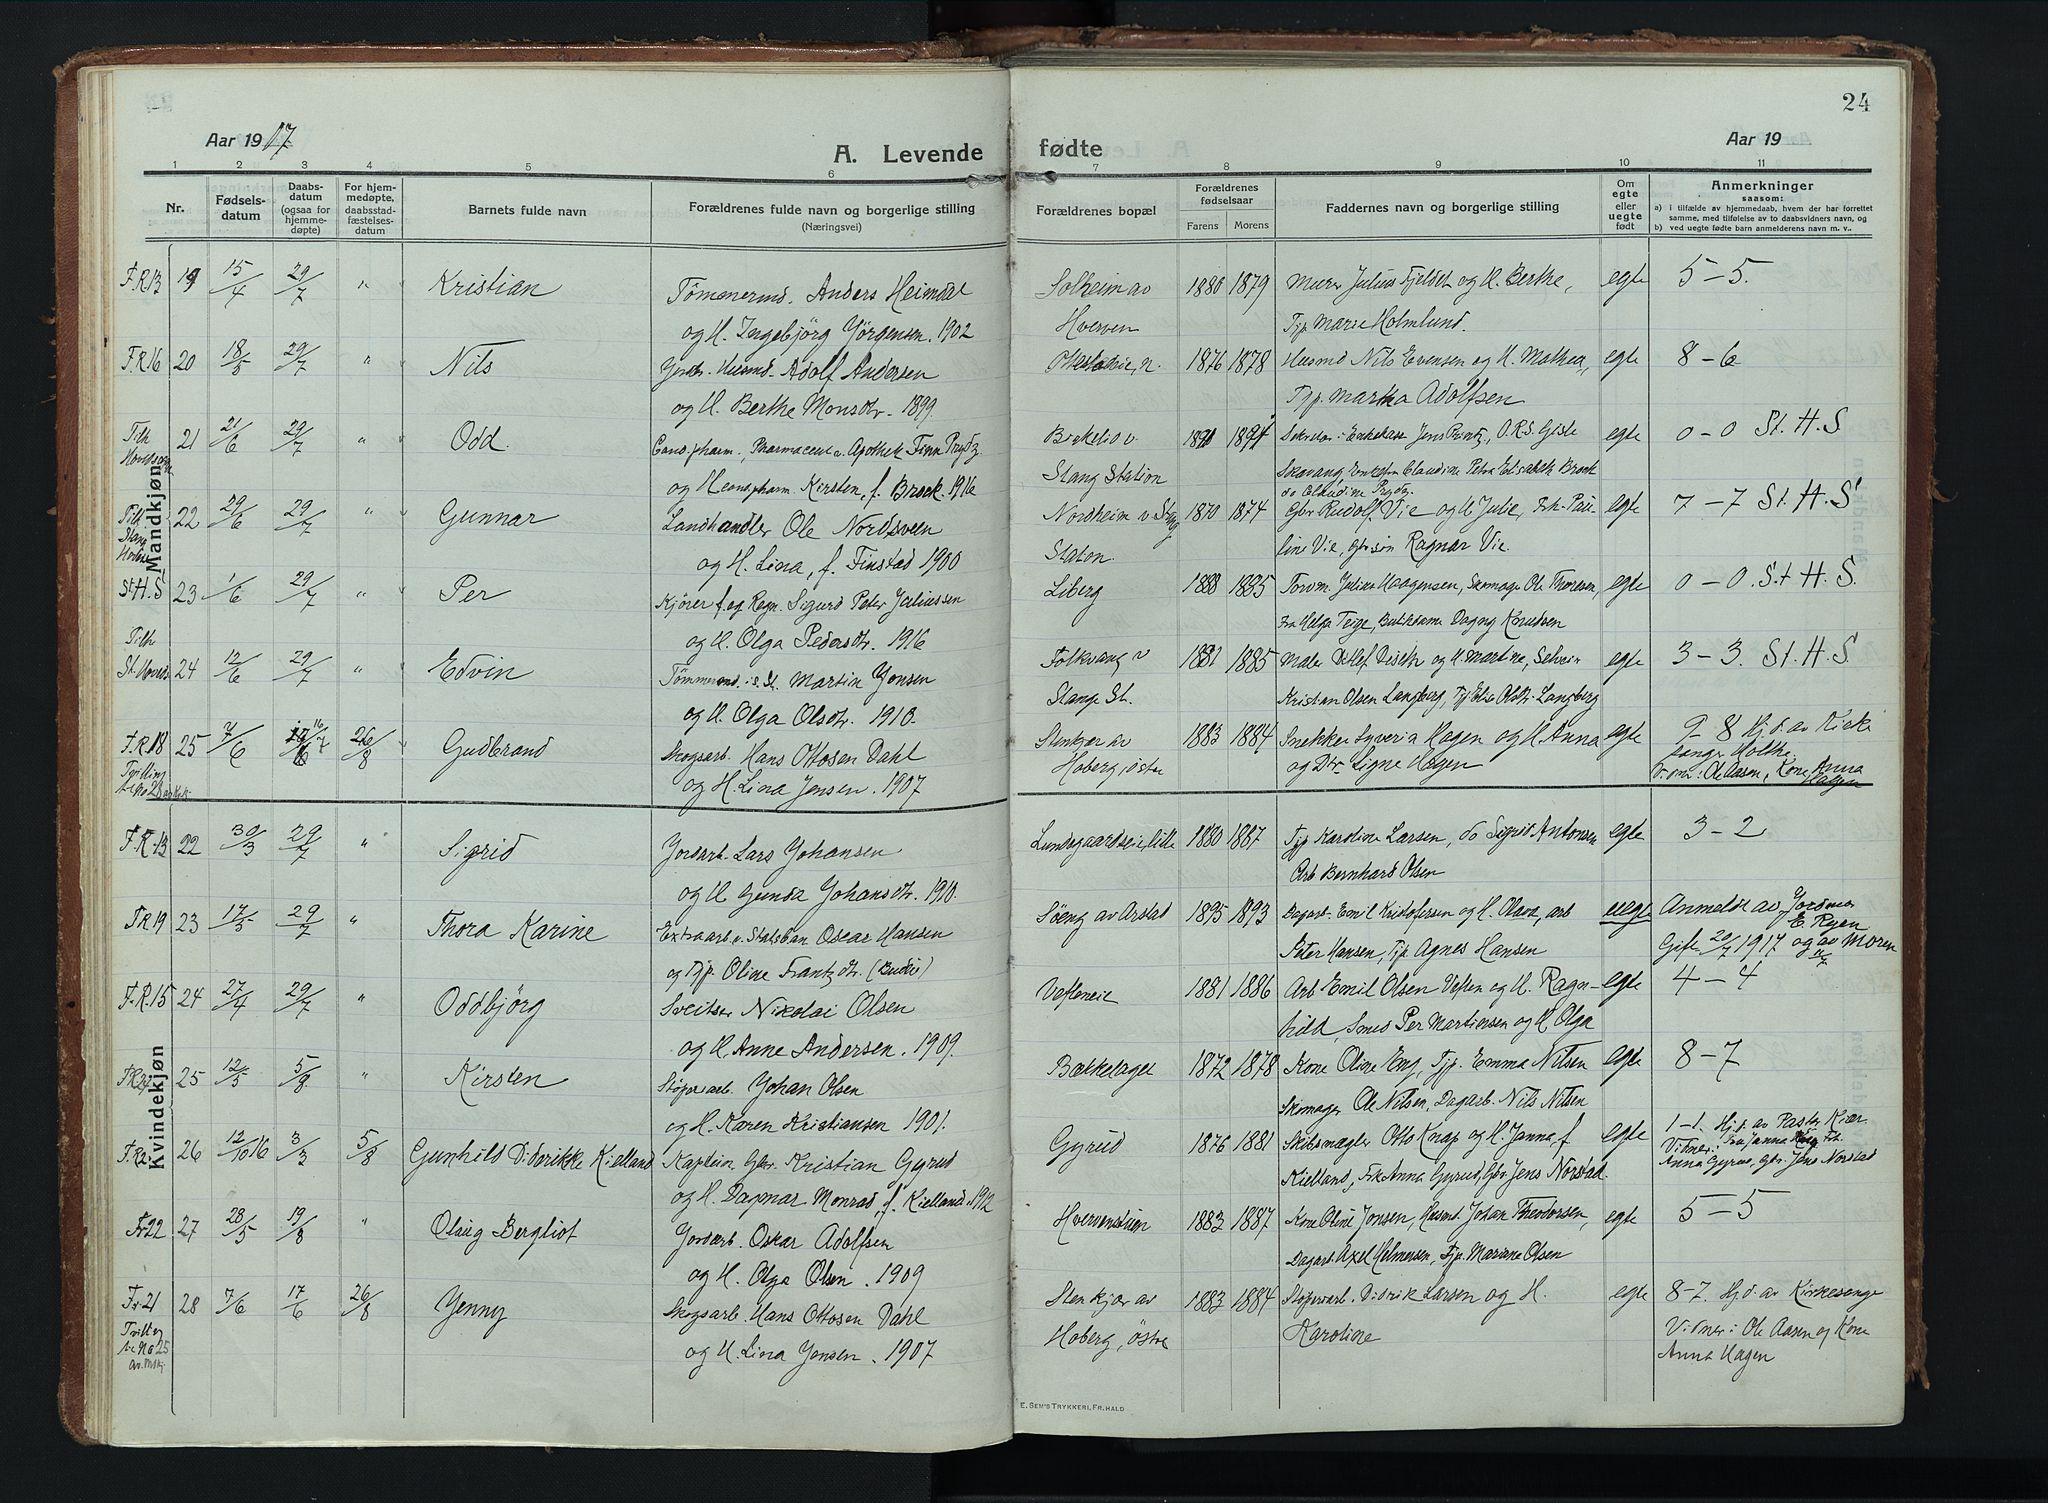 24
Aar 1917
A. Levende fødte
Aar 19
1 2 3 4 5 6 7 8 9 10 11
Nr.
Fødsels-
datum
Daabs-
datum
(ogsaa for
hjemme-
døpte)
For hjem-
medøpte,
daabsstad-
fæstelses-
datum
Barnets fulde navn
Forældrenes fulde navn og borgerlige stilling
(Næringsvei)
Forældrenes bopæl
Forældrenes
fødselsaar
Farens Morens
Faddernes navn og borgerlige stilling
Om
egte
eller
uegte
født
Anmerkninger
saasom:
a) i tilfælde av hjemmedaab, hvem der har forrettet
samme, med tilføielse av to daabsvidners navn, og
b) ved uegte fødte barn anmelderens navn m. v..
Mandkjøn
F.R.13 19 15/4 29/7 " Kristian Tömmermd. Anders Heimdal Solheim av 1880 1879 Murer Julius Fjeldet og H. Berthe, egte 5-5.
og H. Ingebjörg Jörgensen. 1902 Hverven Pjp. Marie Holmlund.
F.R.16 20 18/5 29/7 " Nils Husmd. Adolf Andersen 1876 1878 Husmd Nils Evensen og H. Mathea, egte 8-6
og H. Berthe Monsdtr. 1899 Pjp. Martha Adolfsen
21 21/6 29/7 " Odd. Cand. pharm., Pharmaceut v. Apothek Finn Prydz Birkelio v. 1891 egte 0-0 St. H. S
og H. Cand pharm. Kirsten, f. Brock. 1916 Stang Station Skavang, Enkefru Claudine Petra Elisabeth Brock
do Claudine Prydz.
22 29/6 29/7 " Gunnar Landhandler Ole Nordsveen Nordheim v Stang 1870 1874 Gbr Rudolf Vie og H Julie, Frk. Pau- egte 7-7 St. H. S
og H. Lina, f. Finstad 1900 Station. line Vie, Gbrsön Ragnar Vie.
St.H.S. 23 1/6 29/7 " Per Kjörer f. eg Regn. Sigurd Peter Juliussen Liberg 1888 1895 Julius Haagensen, Skomager Ole Thoresen, egte 0-0. St H. S.
og H. Olga Pedersdtr. 1916 Fru Helga Teige, Butikdame Dagny Knudsen
24 12/6 29/7 " Edvin Tömmermd. Martin Jensen Folkvang v 1881 1885 Maler Detlef Diseth og H. Martine, egte 3-3. St. H. S.
og H. Olga Olsdtr. 1910. Stange St. Kristian Olsen Langberg, Pjp Elise Olsdtr. Langberg
F.R.18 25 7/6 16/7 26/8 Gudbrand Skogsarb. Hans Ottosen Dahl Stenkjær av 1883 1884 Snekker Syver Hagen og H Anna egte 9-8 Hj.d. av Kirke
og H. Lina Jensen. 1907 Hoberg, östre og Dtr. Signe Hagen sanger Holthe.
Vidner: Ole Aasen, Kone Anna Hagen
Kvindekjøn
F.R.13 22 30/3 29/7 " Sigrid Jordarb. Lars Johansen Lundsgaardseie, lille 1880 1887 Pjp Karoline Larsen, do Sigrid Antonsen egte 3-2
og H Gunda Johansdtr. 1910. Arb Bernhard Olsen
F.R.19 23 17/5 29/7 " Thora Karine Extraarb. v. Statsban Oscar Hansen Söeng av Arstad 1895 1893 Dagarb. Emil Kristofersen og H. Olava, arb uegte Anmeldt av Jordmor
E. Ryen
og Pjp. Oline Frantzdtr. (Budeie) Peter Hansen, Pjp Agnes Hansen Gifte 20/7 1917 og av Moren
F.R.15 24 27/4 29/7 " Oddbjörg Sveitser Nikolai Olsen Vefleneie 1881 1886 Arb Emil Olsen Veflen og H. Ragn- egte 4-4
og H. Anne Andersen. 1909. hild, Smed Per Martinsen og H Olga
25 12/5 5/8 " Kirsten Stöperiarb. Johan Olsen Bækkelaget 1872 1878 Kone Oline Eng, Pjp. Emma Nilsen egte 8-7
og H. Karen Kristiansen 1901. Skomager Ole Nilsen, Dagarb. Nils Nilsen
26 12/10 16 3/3 5/8 Gunhild Diderikke Kielland Kaptein, Gbr. Kristian Gyrud Gyrud 1876 1881 Skibsmægler Otto Knap og H. Janna, f egte 1-1. Hj.d. av Pastor Kiær
og H. Dagmar Monrad, f. Kielland. 1912 Kielland, Frk Anna Gyrud, Gbr Jens Norstad. Vidner:
Anna Gyrud, Gbr. Jens Norstad
Fr22 27 28/5 19/8 " Olaug Bergliot Jordarb. Oskar Adolfsen Hvervenstuen 1883 1887 Kone Oline Jonsen, Husmd Johan Theodorsen, egte 5-5
og H. Olga Olsen. 1909 Dagarb. Axel Helmersen, Pjp. Mariane Olsen
Fr.21 28 7/6 17/6 26/8 Jenny Skogsarb. Hans Ottosen Dahl Stenkjær av 1883 1884 Stöperiarb. Didrik Larsen og H. egte 8-7. Hj.d. av Kirkesanger
Tvilling
av No 25
av Mkj. og H. Lina Jensen. 1907 Hoberg, östre Karoline Vidner: Ole Aasen og Kone
Anna Hagen
E. SEM'S TRYKKERI, FR. HALD